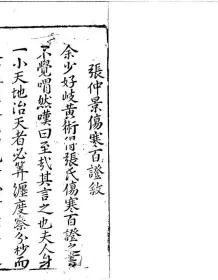 張仲景傷寒百證敘
余少好岐黃術得張氏傷寒百證之書
不覺喟然嘆曰至哉其言之也夫人身
一小天地治天者必筭躔度察分杪而